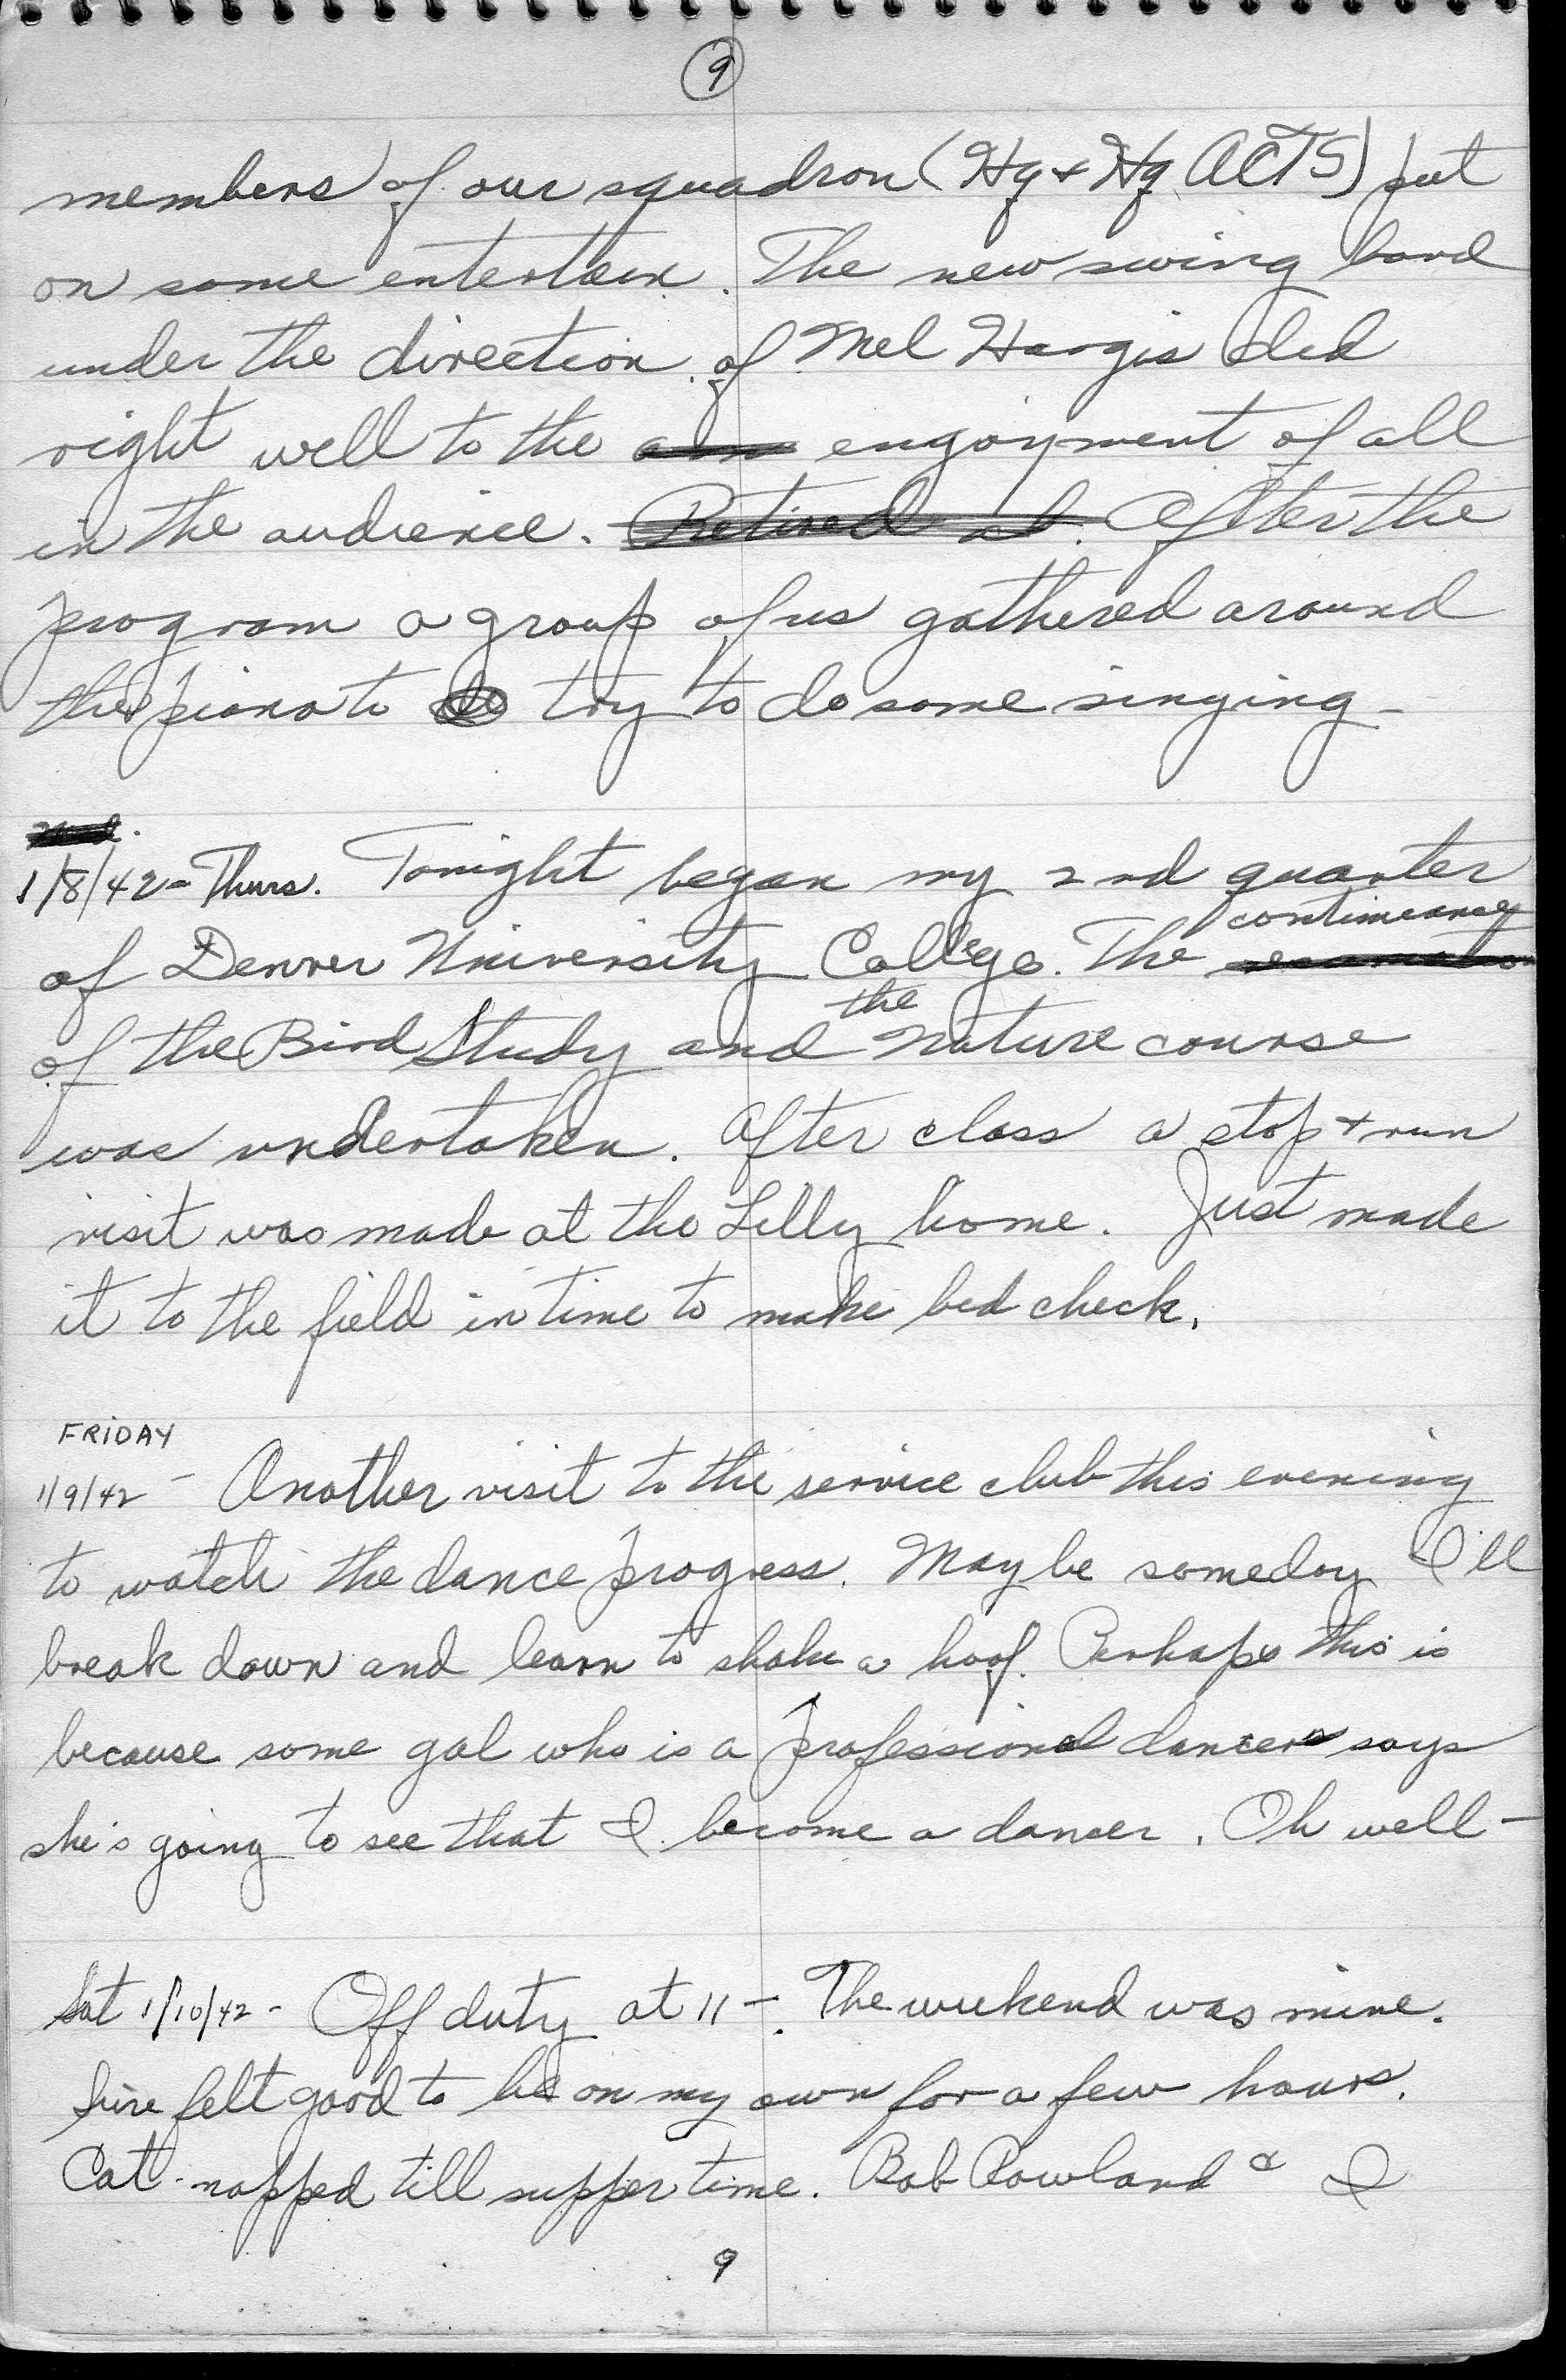 9
members of our squadron (Hq + Hq ACTS) put
on some entertain. The new swing band
under the direction of Mel Hargis did
right well to the engoyment of all
in the audience. Retired at. After the
program a group of us gathered around
the piano to do try to do some singing -
Wed.
1/8/42 - Thurs. Tonight began my 2nd quarter
continuance
of Denver University College. The
the
of the Bird Study and Nature course
was undertaken. After class a stop + run
visit was made at the Lilly home. Just made
it to the field in time to make bed check.
FRiDAY
1/9/42 - Another visit to the service club this evening
to watch the dance progress. Maybe someday I'll
break down and learn to shake a hoof. Perhaps this is
because some gal who is a professional dancer says
she's going to see that I become a dancer. Oh well -
Sat 1/10/42 - Off duty at 11 -. The weekend was mine.
Sure felt good to be on my own for a few hours.
Cat-napped till supper time. Bob Rowland & I
9